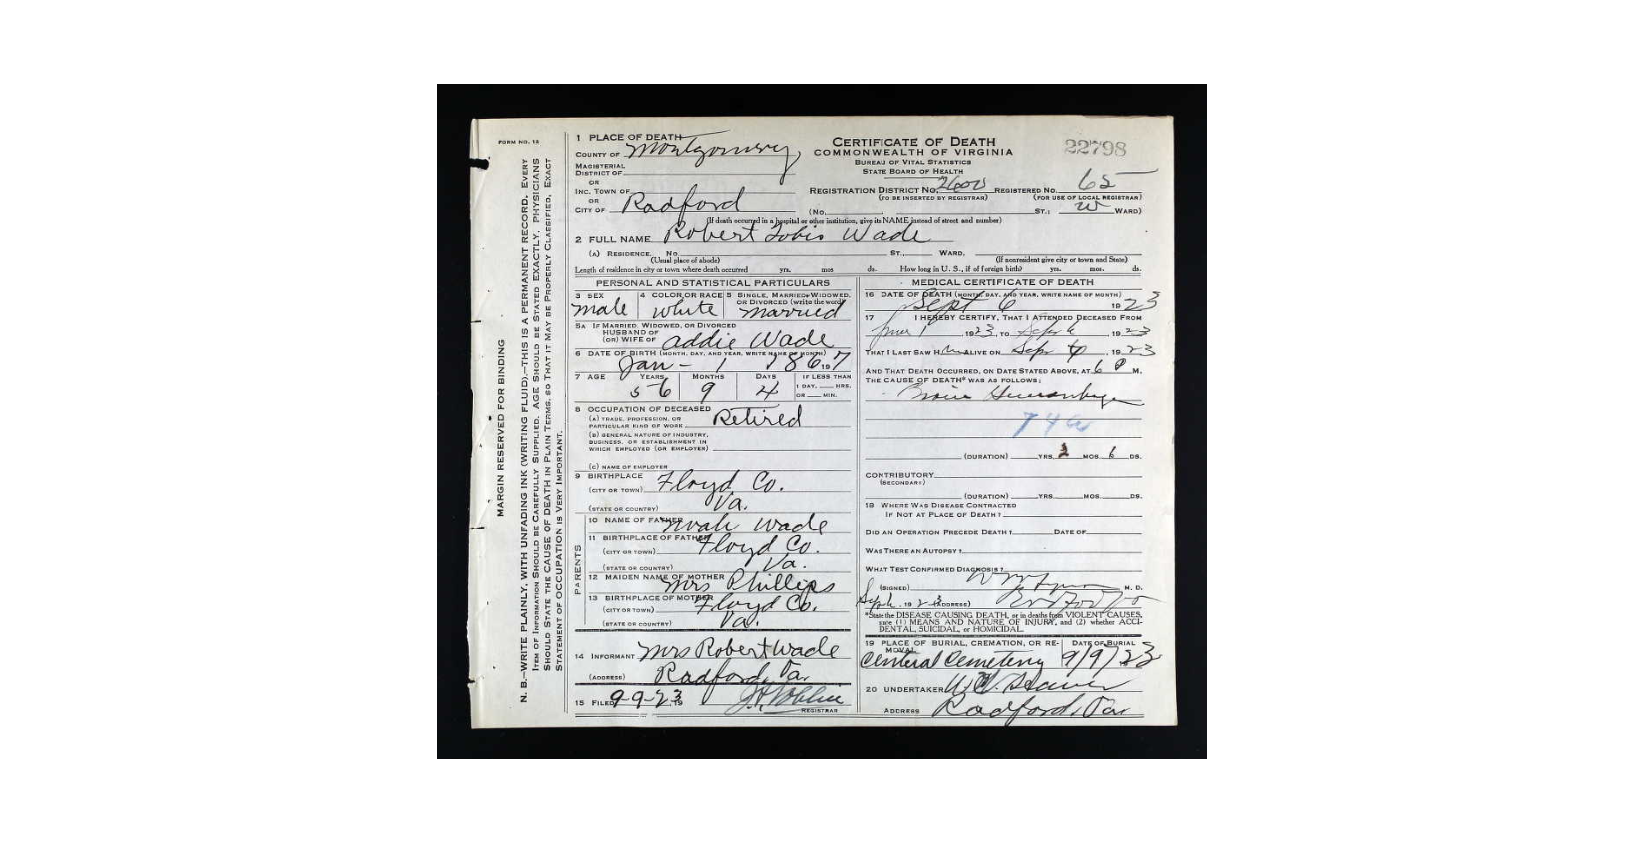 FORM NO. 12
MARGIN RESERVED FOR BINDING
N. B.—WRITE PLAINLY, WITH UNFADING INK (WRITING FLUID).—THIS IS A PERMANENT RECORD. EVERY
ITEM OF INFORMATION SHOULD BE CAREFULLY SUPPLIED. AGE SHOULD BE STATED EXACTLY. PHYSICIANS
SHOULD STATE THE CAUSE OF DEATH IN PLAIN TERMS, SO THAT IT MAY BE PROPERLY CLASSIFIED. EXACT
STATEMENT OF OCCUPATION IS VERY IMPORTANT.
1 PLACE OF DEATH
COUNTY OF Montgomery
MAGISTERIAL
DISTRICT OF
OR
INC. TOWN OF
OR
CITY OF Radford
CERTIFICATE OF DEATH
COMMONWEALTH OF VIRGINIA
BUREAU OF VITAL STATISTICS
STATE BOARD OF HEALTH
22798
REGISTRATION DISTRICT NO. 2600 REGISTERED NO. 65
(TO BE INSERTED BY REGISTRAR) (FOR USE OF LOCAL REGISTRAR)
(No. ST.; W WARD)
(If death occurred in a hospital or other institution, give its NAME instead of street and number)
2 FULL NAME Robert Wade
(A) RESIDENCE. No. ST., WARD.
(Usual place of abode) (If nonresident give city or town and State)
Length of residence in city or town where death occurred yrs. mos ds. How long in U. S., if of foreign birth? yrs. mos. ds.
PERSONAL AND STATISTICAL PARTICULARS
3 SEX 4 COLOR OR RACE 5 SINGLE, MARRIED, WIDOWED,
OR DIVORCED (write the word)
male white married
5A IF MARRIED, WIDOWED, OR DIVORCED
HUSBAND OF
(OR) WIFE OF Addie Wade
6 DATE OF BIRTH (MONTH, DAY, AND YEAR, WRITE NAME OF MONTH)
Jan - 1 1867
7 AGE YEARS MONTHS DAYS IF LESS THAN
1 DAY, HRS.
OR MIN.
56 9 4
8 OCCUPATION OF DECEASED
(A) TRADE, PROFESSION, OR
PARTICULAR KIND OF WORK Retired
(B) GENERAL NATURE OF INDUSTRY,
BUSINESS, OR ESTABLISHMENT IN
WHICH EMPLOYED (OR EMPLOYER)
(C) NAME OF EMPLOYER
9 BIRTHPLACE
(CITY OR TOWN) Floyd Co.
(STATE OR COUNTRY) Va.
PARENTS
10 NAME OF FATHER Noah Wade
11 BIRTHPLACE OF FATHER
(CITY OR TOWN) Floyd Co.
(STATE OR COUNTRY) Va.
12 MAIDEN NAME OF MOTHER Mrs Phillips
13 BIRTHPLACE OF MOTHER
(CITY OR TOWN) Floyd Co.
(STATE OR COUNTRY) Va.
14 INFORMANT Mrs Robert Wade
(ADDRESS) Radford, Va.
15 FILED 9-9-23 19
REGISTRAR
MEDICAL CERTIFICATE OF DEATH
16 DATE OF DEATH (MONTH, DAY, AND YEAR, WRITE NAME OF MONTH)
Sept 6 1923
17 I HEREBY CERTIFY, THAT I ATTENDED DECEASED FROM
June 1 1923, TO Sept 6, 1923
THAT I LAST SAW HIM ALIVE ON Sep 6, 1923
AND THAT DEATH OCCURRED, ON DATE STATED ABOVE, AT 6 P M.
THE CAUSE OF DEATH* WAS AS FOLLOWS:
74a
(DURATION) YRS. 3 MOS. 6 DS.
CONTRIBUTORY
(SECONDARY)
(DURATION) YRS. MOS. DS.
18 WHERE WAS DISEASE CONTRACTED
IF NOT AT PLACE OF DEATH?
DID AN OPERATION PRECEDE DEATH? DATE OF
WAS THERE AN AUTOPSY?
WHAT TEST CONFIRMED DIAGNOSIS?
(SIGNED) M. D.
1923 (ADDRESS)
*State the DISEASE CAUSING DEATH, or in deaths from VIOLENT CAUSES,
state (1) MEANS AND NATURE OF INJURY, and (2) whether ACCI-
DENTAL, SUICIDAL, or HOMICIDAL.
19 PLACE OF BURIAL, CREMATION, OR RE- DATE OF BURIAL
MOVAL
Central Cemetery 9/9/23
20 UNDERTAKER
ADDRESS Radford, Va